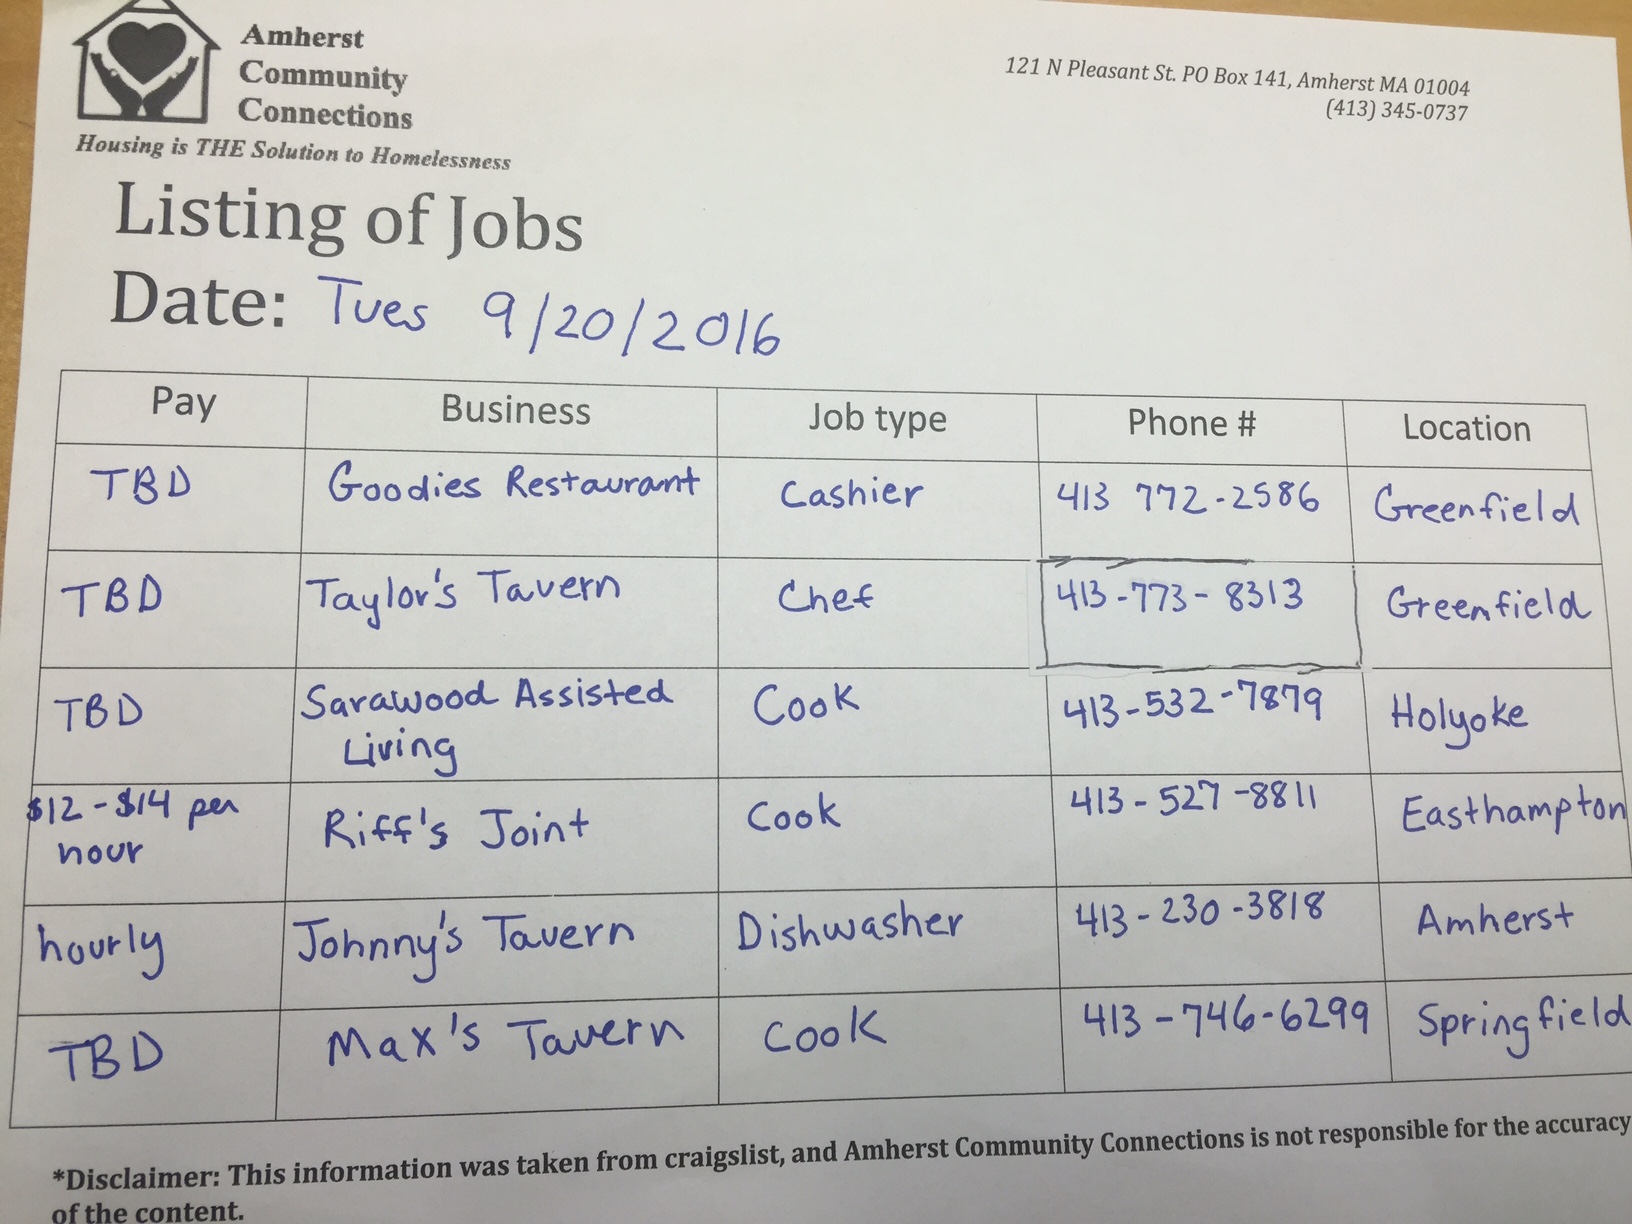 Amherst
Community
Connections
Housing is THE Solution to Homelessness
121 N Pleasant St. PO Box 141, Amherst MA 01004
(413) 345-0737
Listing of Jobs
Date: Tues 9/20/2016
Pay Business Job type Phone # Location
TBD Goodies Restaurant Cashier 413 772-2586 Greenfield
TBD Taylor's Tavern Chef 413-773-8313 Greenfield
TBD Sarawood Assisted Cook 413-532-7879 Holyoke
Living
$12-$14 per Riff's Joint Cook 413-527-8811 Easthampton
hour
hourly Johnny's Tavern Dishwasher 413-230-3818 Amherst
TBD Max's Tavern Cook 413-746-6299 Springfield
*Disclaimer: This information was taken from craigslist, and Amherst Community Connections is not responsible for the accuracy
of the content.